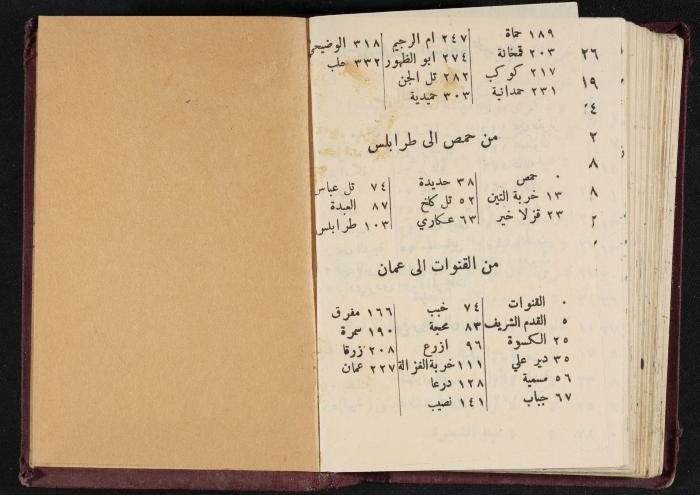 ١٨٩ حماة
٢٠٣ قمخانة
٢١٧ كوكب
٢٣١ حمدانية
٢٤٧ ام الرجيم
٢٧٤ ابو الظهور
٢٨٢ تل الجن
٣٠٣ حميدية
٣١٨ الوضيحي
٣٣٢ حلب
من حمص الى طرابلس
٠ حمص
١٣ خربة التين
٢٣ قزلاخير
٣٨ حديدة
٥٢ تل كلخ
٦٣ عكاري
٧٤ تل عباس
٨٧ العبدة
١٠٣ طرابلس
من القنوات الى عمان
٠ القنوات
٥ القدم الشريف
٢٥ الكسوة
٣٥ دير علي
٥٦ مسمية
٦٧ جباب
٧٤ خبب
٨٣ محجة
٩٦ ازرع
١١١ خربة الغزالة
١٢٨ درعا
١٤١ نصيب
١٦٦ مفرق
١٩٠ سمرة
٢٠٨ زرقا
٢٢٧ عمان
٢٦
١٩
٢٤
٢
٨
٨
٢